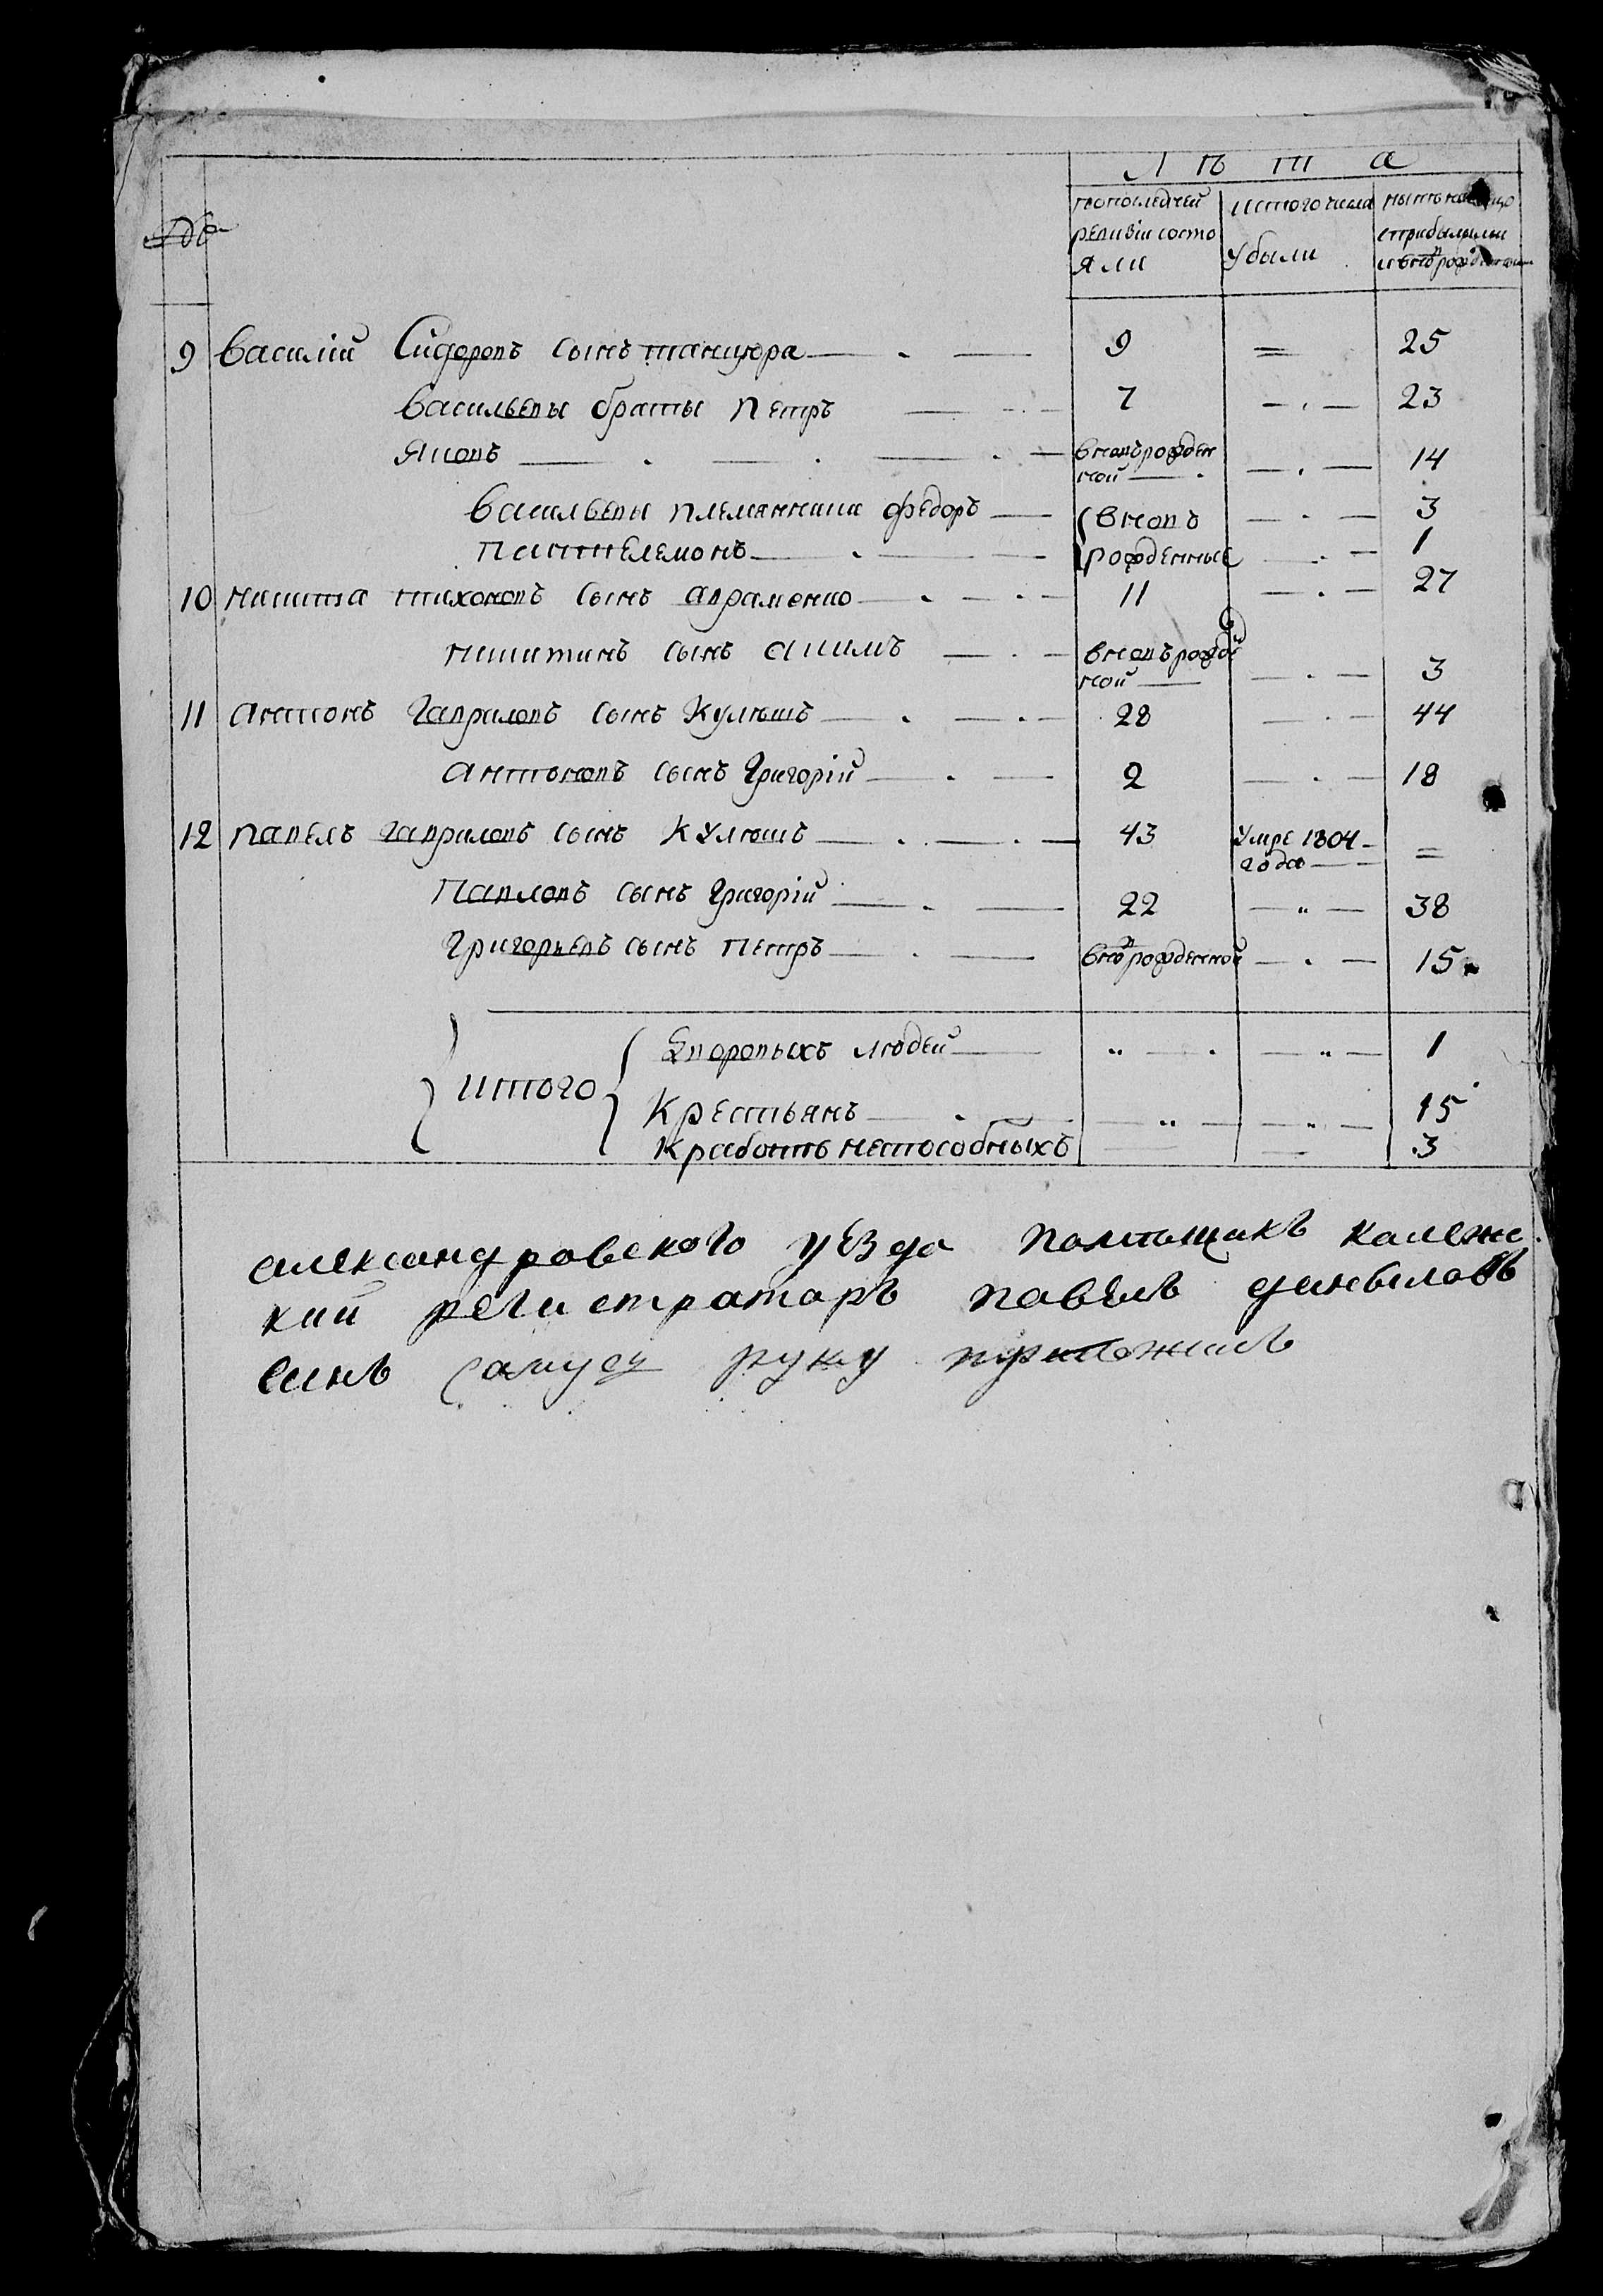 №
Лѣта
по последней ревизіи состояли
ис того числа убыли
ныне на лицо с прибылыми и внов рожденными
9 Василий Сидоровъ сынъ танцюра 9 = 25
Васильевы браты Петръ 7 23
Яковъ вновь рожденной 14
Васильевы племянники Федоръ вновь 3
Пантелемонъ рожденные 1
10 никита тихоновъ сынъ авраменко 11 27
никитинъ сынъ акимъ вновь рожденой 3
11 антонъ Гавриловъ сынъ Кулюшъ 28 44
антоновъ сынъ Григорій 2 18
12 павелъ гавриловъ сынъ Кулюшъ 43 Умре 1804 года =
Павловъ сынъ Григорій 22 38
Григорьевъ сынъ Петръ внов рожденной 15
итого
Дворовыхъ людей 1
Крестьянъ 15
К работѣ неспособныхъ 3
александровского уезда помѣщикъ колежс
кий регистраторъ павелъ
синъ руку приложилъ